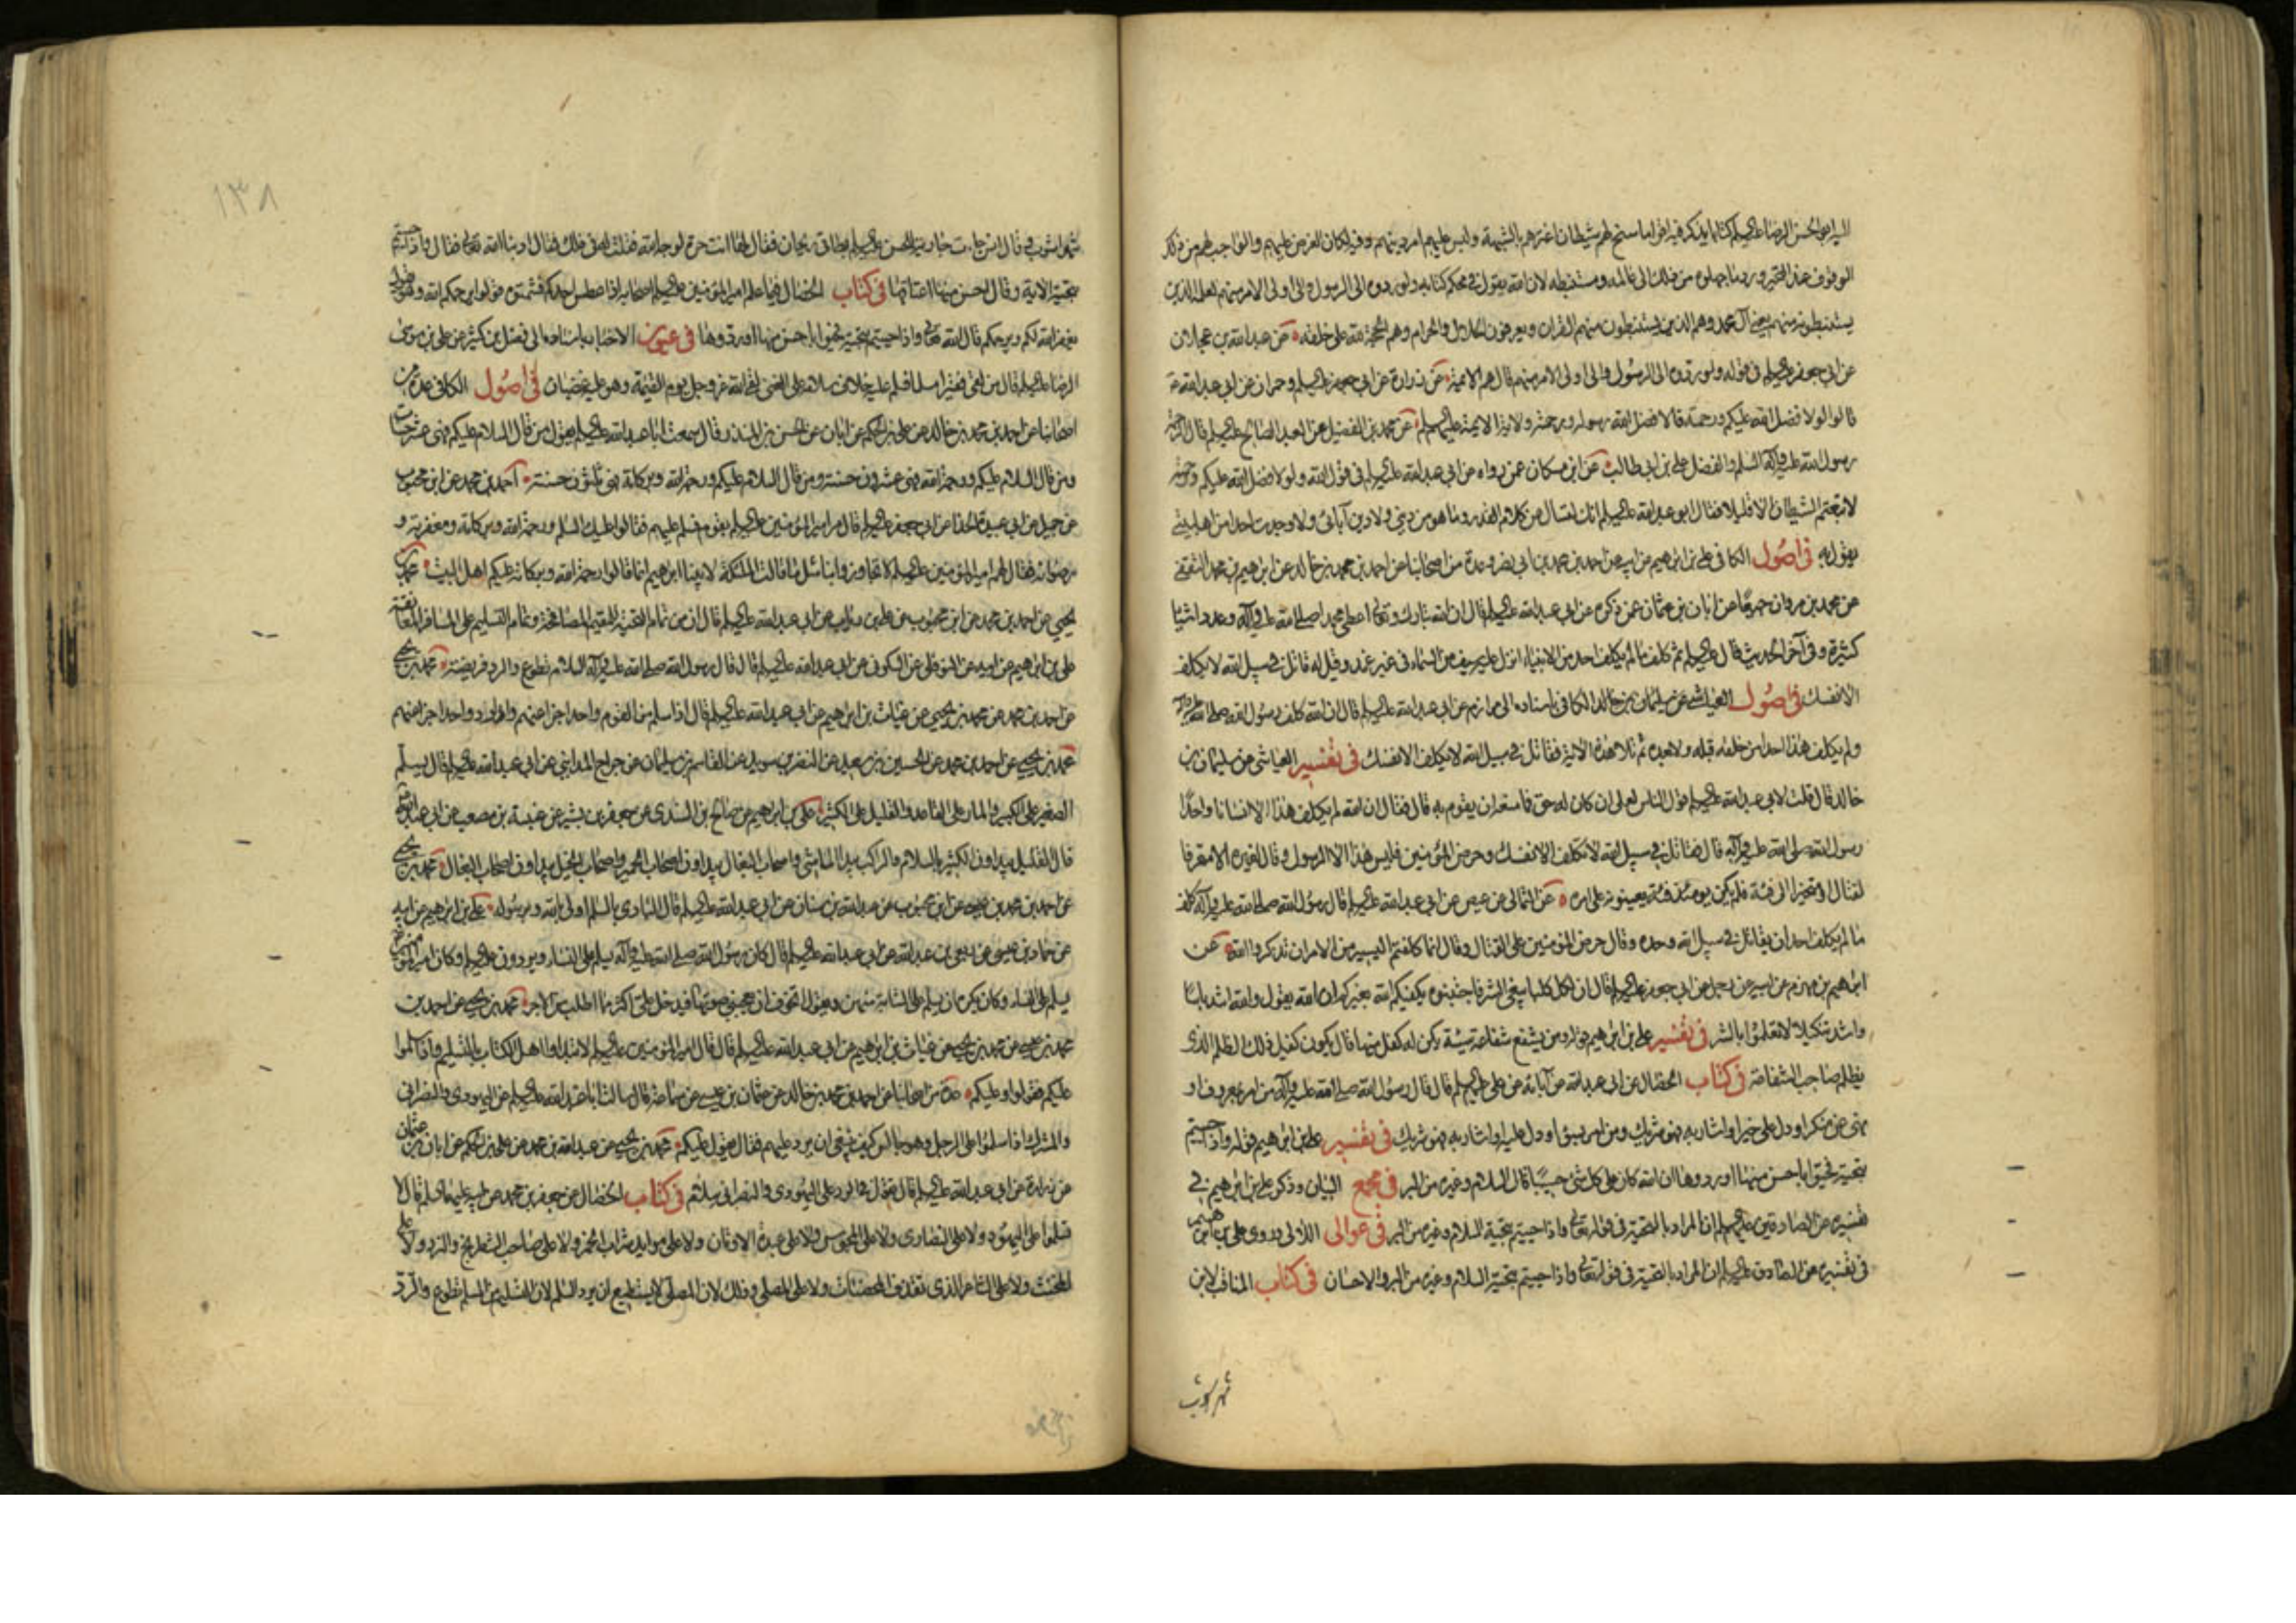 الوقوف عند التحير ورد ما جهلوه من ذلك الى عالمه ومستنبطه لان الله يقول في محكم كتابه ولو ردوه الى الرسول والى اولى الامر منهم لعلمه الذين
يستنبطونه منهم يعني آل محمد وهم الذين يستنبطون منهم القران ويعرفون الحلال والحرام وهم الحجة لله على خلقه عن عبد الله بن عجلان
عن ابي جعفر عليه السلم في قوله ولو ردوه الى الرسول والى اولى الامر منهم قال هم الائمة عن زرارة عن ابي جعفر عليه السلم وحمران عن ابي عبد الله
قالوا لولا فضل الله عليكم ورحمته قالا فضل الله رسوله ورحمته ولاية الائمة عليهم السلم عن محمد بن الفضيل عن العبد الصالح عليه السلم قال الرحمة
رسول الله عليه وآله السلم والفضل علي بن ابي طالب عن ابن مسكان عمن رواه عن ابي عبد الله عليه السلم في قول الله ولولا فضل الله عليكم ورحمته
لاتبعتم الشيطان الا قليلا فقال ابو عبد الله عليه السلم انك لتسال من كلام القدر وما هو من ديني ولا دين آبائي ولا وجدت احدا من اهل بيتي
يقول به في اصول الكافي علي بن ابرهيم عن ابيه عن احمد بن محمد بن ابي نصر وعدة من اصحابنا عن احمد بن محمد بن خالد عن ابرهيم بن محمد الثقفي
عن محمد بن مروان جميعا عن ابان بن عثمان عمن ذكره عن ابي عبد الله عليه السلم قال ان الله تبارك وتعالى اعطى محمدا صلى الله عليه وآله وعدد اشيا
كثيرة وفي آخر الحديث قال عليه السلم ثم كلف ما لم يكلف احد من الانبياء انزل عليه سيف من السماء في غير غمد وقيل له قاتل في سبيل الله لا يكلف
ولم يكلف هذا احدا من خلقه قبله ولا بعده ثم تلا هذه الآية فقاتل في سبيل الله لا تكلف الا نفسك في تفسير العياشي عن سليمان بن
خالد قال قلت لابي عبد الله عليه السلم قول الناس لعلي ان كان له حق فما منعه ان يقوم به قال فقال ان الله لم يكلف هذا الا انسانا واحدا
رسول الله صلى الله عليه وآله قال فقاتل في سبيل الله لا تكلف الا نفسك وحرض المؤمنين فليس هذا الا للرسول وقال لغيره الا متحرفا
لقتال او متحيزا الى فئة فلم يكن يومئذ فئة يعينونه على امره عن الثمالي عن عيص عن ابي عبد الله عليه السلم قال رسول الله صلى الله عليه وآله كلف
ما لم يكلف احد ان يقاتل في سبيل الله وحده وقال حرض المؤمنين على القتال وقال انما كلفتم اليسير من الامر ان تذكروا الله عن
ابرهيم بن مهزم عن ابيه عن رجل عن ابي جعفر عليه السلم قال ان لكل كلبا يبغي الشر فاجتنبوه يكفيكم الله بغيركم ان الله يقول والله اشد باسا
واشد تنكيلا لا تعلموا بالشر في تفسير علي بن ابرهيم قوله ومن يشفع شفاعة سيئة يكن له كفل منها قال يكون كفيل ذلك الظلم الذي
يظلم صاحب الشفاعة في كتاب الخصال عن ابي عبد الله عن آبائه عن علي عليهم السلم قال قال رسول الله صلى الله عليه وآله من امر بمعروف او
نهى عن منكر او دل على خير او اشار به فهو شريك ومن امر بسوء او دل عليه او اشار به فهو شريك في تفسير علي بن ابرهيم قوله واذا حييتم
بتحية فحيوا باحسن منها او ردوها ان الله كان على كل شئ حسيبا قال السلام وغيره من البر في مجمع البيان وذكر علي بن ابرهيم في
تفسيره عن الصادقين عليهم السلم ان المراد بالتحية في قوله تعالى واذا حييتم بتحية السلام وغيره من البر في عوالى اللآلي وروى علي بن ابرهيم
في تفسيره عن الصادق عليه السلم ان المراد بالتحية في قوله تعالى واذا حييتم بتحية السلام وغيره من البر والاحسان في كتاب المناقب لابن
شهر اشوب
١٣٨
شهر اشوب قال انس جاءت جارية للحسن عليه السلم بطاق ريحان فقال لها انت حرة لوجه الله فقلت له في ذلك فقال ادبنا الله تعالى فقال واذا حييتم
بتحية الآية وقال احسن منها اعتاقها في كتاب الخصال فيما علم امير المؤمنين عليه السلم اصحابه اذا عطس احدكم فسمتوه قولوا يرحمكم الله وهو يقول
يغفر الله لكم ويرحمكم قال الله تعالى واذا حييتم بتحية فحيوا باحسن منها او ردوها في عيون الاخبار باسناده الى فضل بن كثير عن علي بن موسى
الرضا عليه السلم قال من لقي فقيرا مسلما فسلم عليه خلاف سلامه على الغني لقي الله عز وجل يوم القيمة وهو عليه غضبان في اصول الكافي عدة من
اصحابنا عن احمد بن محمد بن خالد عن علي بن الحكم عن ابان عن الحسن بن المنذر قال سمعت ابا عبد الله عليه السلم يقول من قال السلام عليكم فهي عشر حسنات
ومن قال السلام عليكم ورحمة الله فهي عشرون حسنة ومن قال السلام عليكم ورحمة الله وبركاته فهي ثلثون حسنة احمد بن محمد عن ابن محبوب
عن جميل عن ابي عبيدة الحذا عن ابي جعفر عليه السلم قال مر امير المؤمنين عليه السلم بقوم فسلم عليهم فقالوا عليك السلم ورحمة الله وبركاته ومغفرته و
رضوانه فقال لهم امير المؤمنين عليه السلم لا تجاوزوا بنا مثل ما قالت الملئكة لابينا ابرهيم انما قالوا رحمة الله وبركاته عليكم اهل البيت محمد بن
يحيى عن احمد بن محمد عن ابن محبوب عن علي بن رئاب عن ابي عبد الله عليه السلم قال ان من تمام التحية للمقيم المصافحة وتمام التسليم على المسافر المعانقة
علي بن ابرهيم عن ابيه عن النوفلي عن السكوني عن ابي عبد الله عليه السلم قال قال رسول الله صلى الله عليه وآله السلام تطوع والرد فريضة محمد بن يحيى
عن احمد بن محمد عن محمد بن يحيى عن غياث بن ابرهيم عن ابي عبد الله عليه السلم قال اذا سلم من القوم واحد اجزا عنهم واذا رد واحد اجزا عنهم
محمد بن يحيى عن احمد بن محمد عن الحسين بن سعيد عن النضر بن سويد عن القاسم بن سليمان عن جراح المدايني عن ابي عبد الله عليه السلم قال يسلم
الصغير على الكبير والمار على القاعد والقليل على الكثير علي بن ابرهيم عن صالح بن السندي عن جعفر بن بشير عن عنبسة بن مصعب عن ابي عبد الله
قال القليل يبداون الكثير بالسلام والراكب يبدا الماشي واصحاب البغال يبداون اصحاب الحمير واصحاب الخيل يبداون اصحاب البغال محمد بن يحيى
عن احمد بن محمد بن عيسى عن ابن محبوب عن عبد الله بن سنان عن ابي عبد الله عليه السلم قال البادي بالسلم اولى بالله وبرسوله علي بن ابرهيم عن ابيه
عن حماد بن عيسى عن ربعي بن عبد الله عن ابي عبد الله عليه السلم قال كان رسول الله صلى الله عليه وآله يسلم على النساء ويرددن عليه السلم وكان امير المؤمنين
يسلم على النساء وكان يكره ان يسلم على الشابة منهن ويقول اتخوف ان يعجبني صوتها فيدخل علي اكثر مما اطلب من الاجر محمد بن يحيى عن احمد بن
محمد بن عيسى عن محمد بن يحيى عن غياث بن ابرهيم عن ابي عبد الله عليه السلم قال قال امير المؤمنين عليه السلم لا تبداوا اهل الكتاب بالتسليم واذا سلموا
عليكم فقولوا وعليكم عدة من اصحابنا عن احمد بن محمد بن خالد عن عثمان بن عيسى عن سماعة قال سالت ابا عبد الله عليه السلم عن اليهودي والنصراني
والمشرك اذا سلموا على الرجل وهو جالس كيف ينبغي ان يرد عليهم فقال يقول عليكم محمد بن يحيى عن عبد الله بن محمد عن علي بن الحكم عن ابان بن عثمان
عن زرارة عن ابي عبد الله عليه السلم قال تقول في الرد على اليهودي والنصراني سلام في كتاب الخصال عن جعفر بن محمد عن ابيه عليهما السلم قال لا
تسلموا على اليهود ولا على النصارى ولا على المجوس ولا على عبدة الاوثان ولا على موايد شراب الخمر ولا على صاحب الشطرنج والنرد ولا على
المخنث ولا على الشاعر الذي يقذف المحصنات ولا على المصلى وذلك لان المصلى لا يستطيع ان يرد السلم لان التسليم من المسلم تطوع والرد